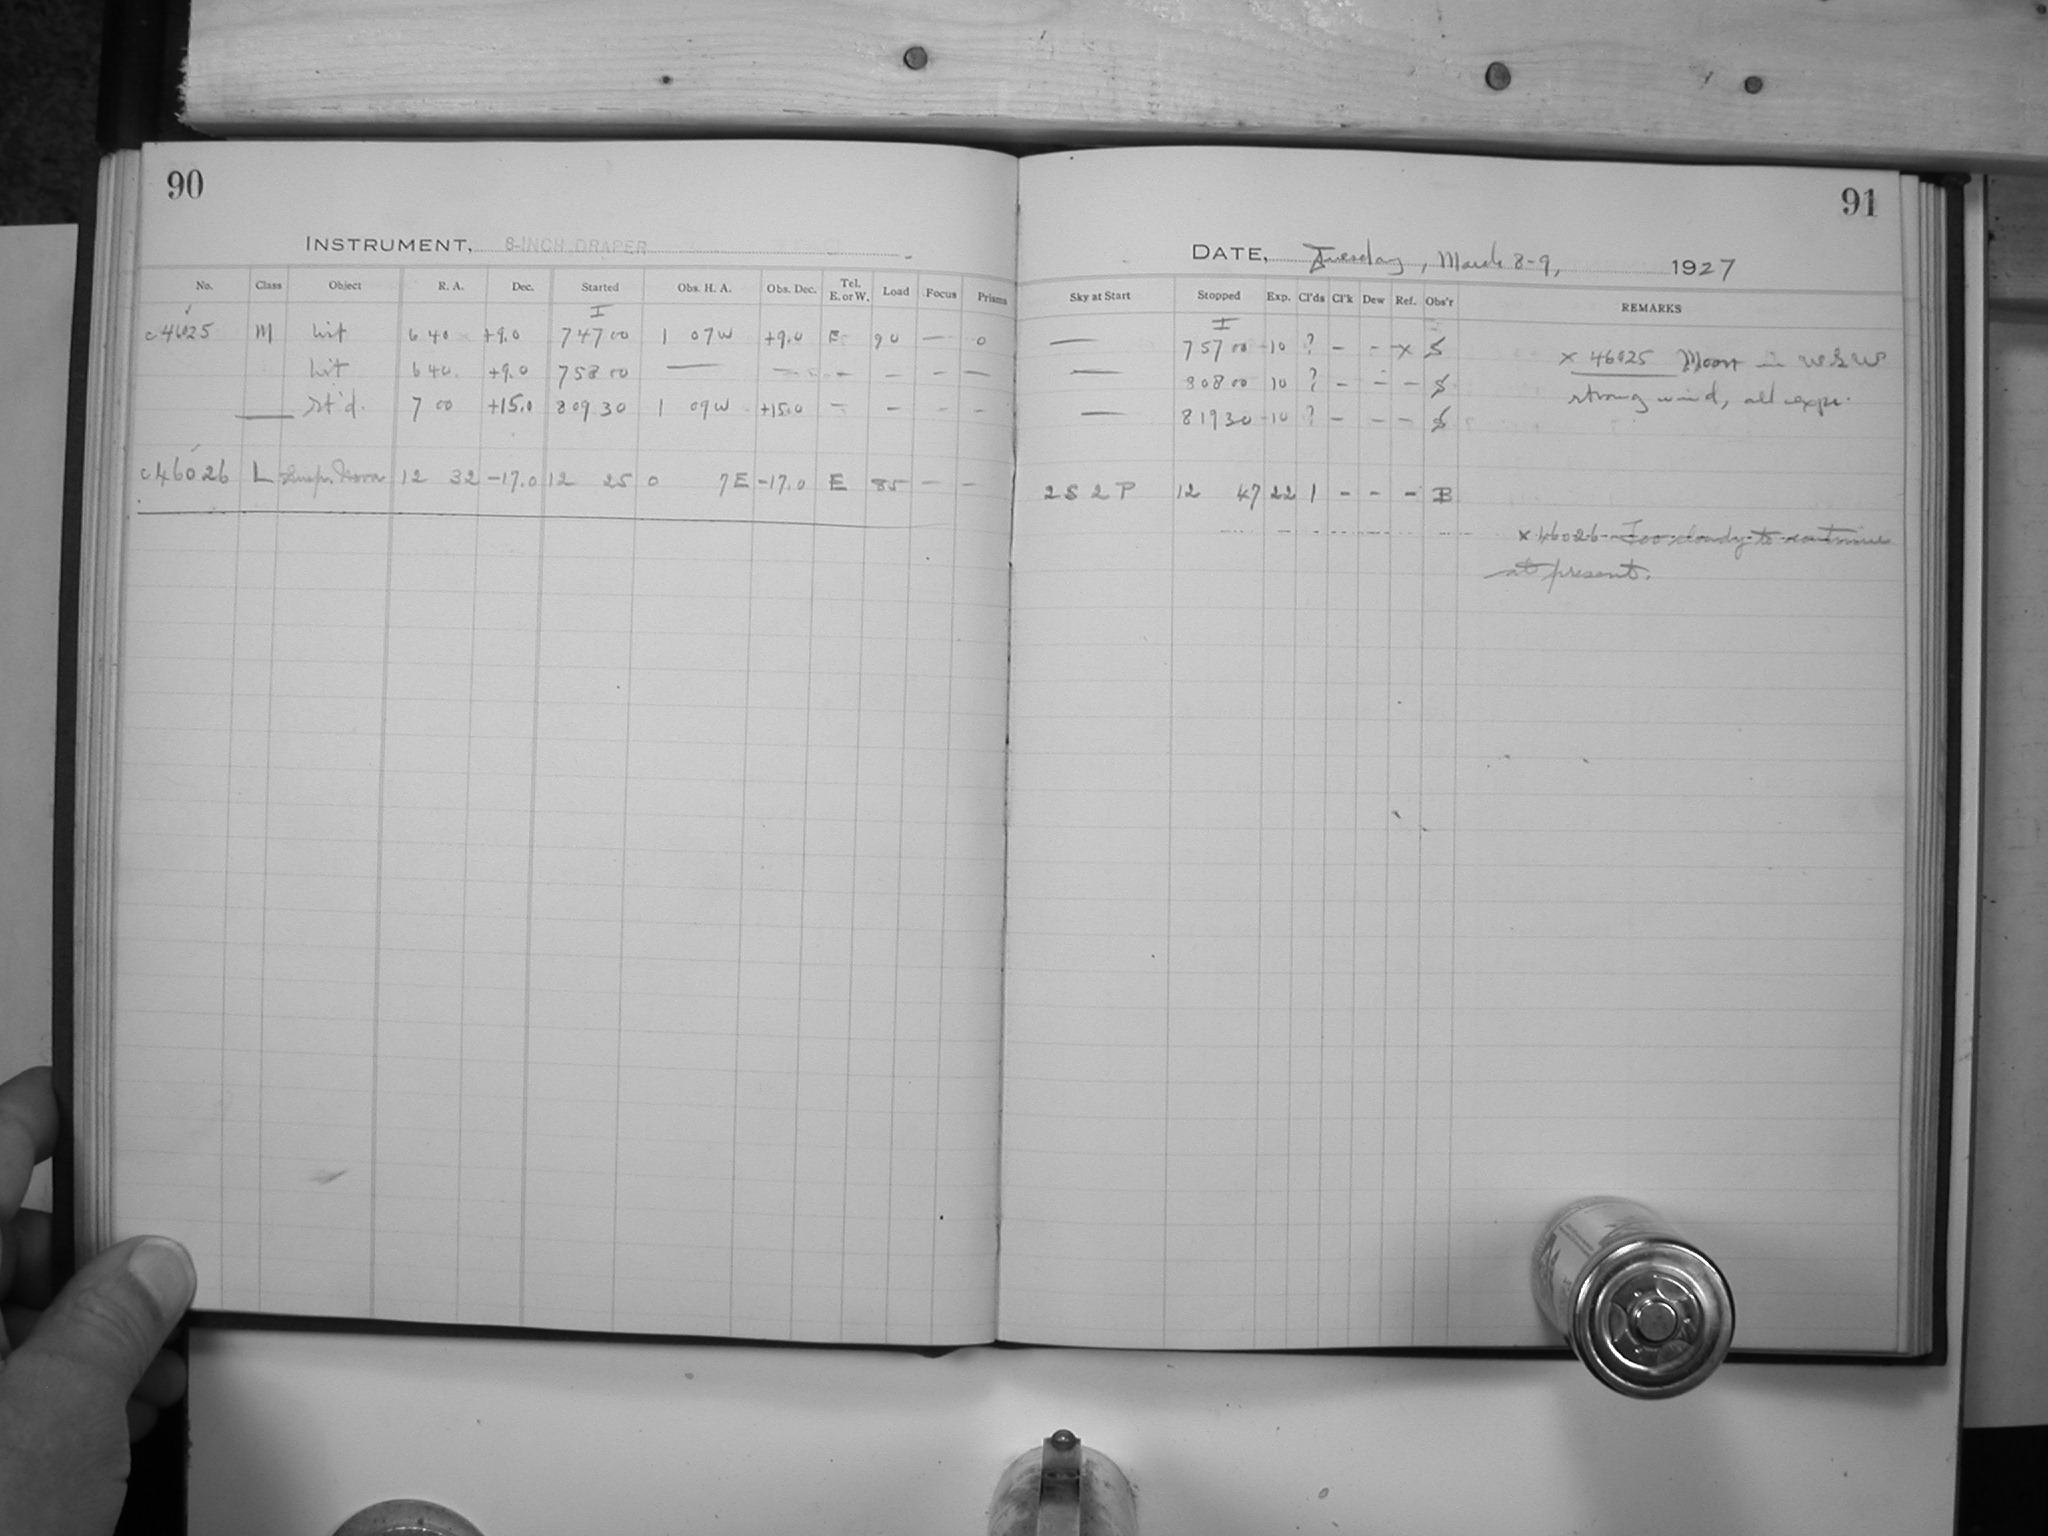 90
INSTRUMENT, 8-INCH DRAPER
No. Class Object R. A. Dec. Started Obs. H. A. Obs. Dec. Tel. E. or W. Load Focus Prisms
I
c46025 M hit 6 40 +9.0 7 47 00 1 07 W +9.0 E 90 — 0
hit 6 40 +9.0 7 58 00 — — — — — —
st'd. 7 00 +15.0 8 09 30 1 09 W +15.0 — — — —
c46026 L Susp. Nova 12 32 -17.0 12 25 0 7 E -17.0 E 85 — —
91
DATE, Tuesday, March 8-9, 1927
Sky at Start Stopped Exp. Cl'ds Cl'k Dew Ref. Obs'r REMARKS
I
— 7 57 00 10 ? - - x S x 46025 Moon in WSW
— 8 08 00 10 ? - - - S strong wind, all expr.
— 8 19 30 10 ? - - - S
2 S 2 P 12 47 22 1 - - - B
x 46026 Too cloudy to continue
at present.